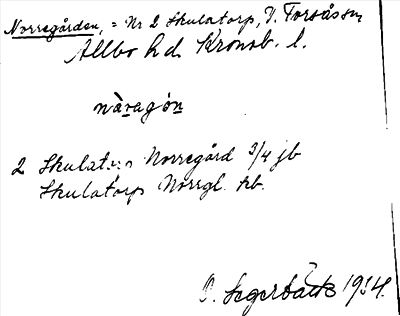 Norregården, = Nr 2 Skulatorp, V. Torsås sn
Allbo hd Kronob. l.
nàragón
2 Skulatorp Norregård 3/4 jb
Skulatorp Norrg. kb.
Segerbäck 1934.